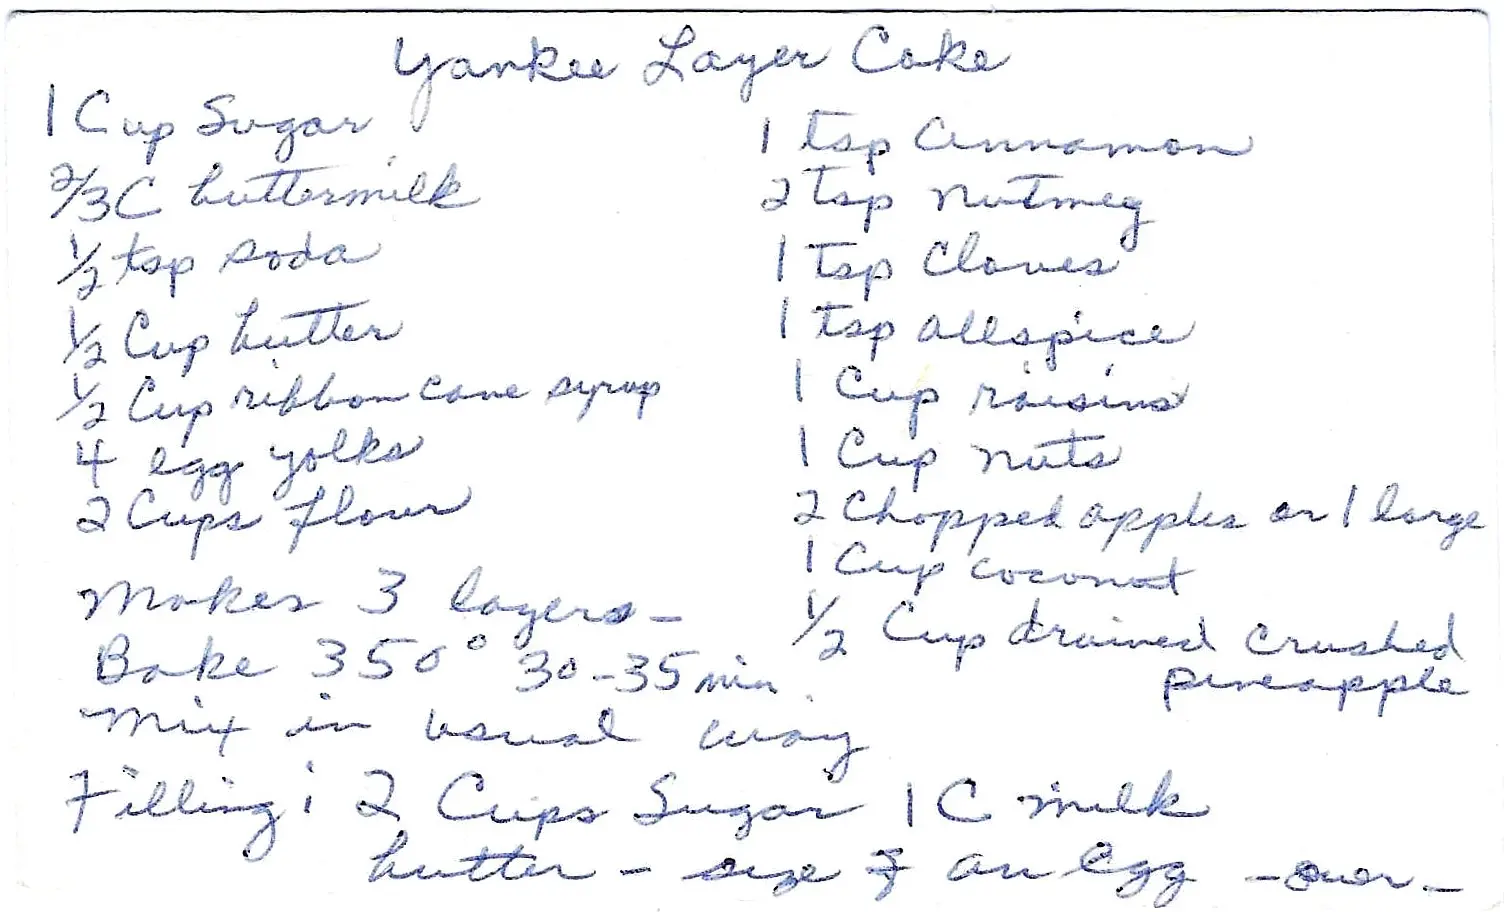 Yankee Layer Cake
1 Cup Sugar
2/3 C buttermilk
1/2 tsp soda
1/2 Cup butter
1/2 Cup ribbon cane syrup
4 egg yolks
2 Cups flour
1 tsp Cinnamon
2 tsp nutmeg
1 tsp Cloves
1 tsp allspice
1 Cup raisins
1 Cup nuts
2 Chopped apples or 1 large
1 Cup coconut
1/2 Cup drained crushed
pineapple
Makes 3 layers -
Bake 350° 30-35 min.
Mix in usual way
Filling: 2 Cups Sugar 1 C milk
butter - size of an egg - over -